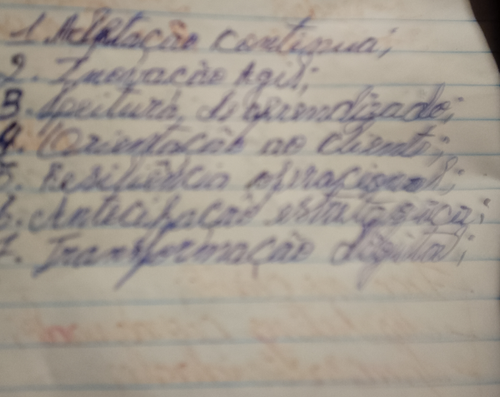 1. Adptação continua;
2. Inovação Agil;
3. Aeitura, d aprendizado;
4. Orientação ao cliente;
5. Resiliência operacional;
6. Antecipação estratégica;
7. Transformação digital;